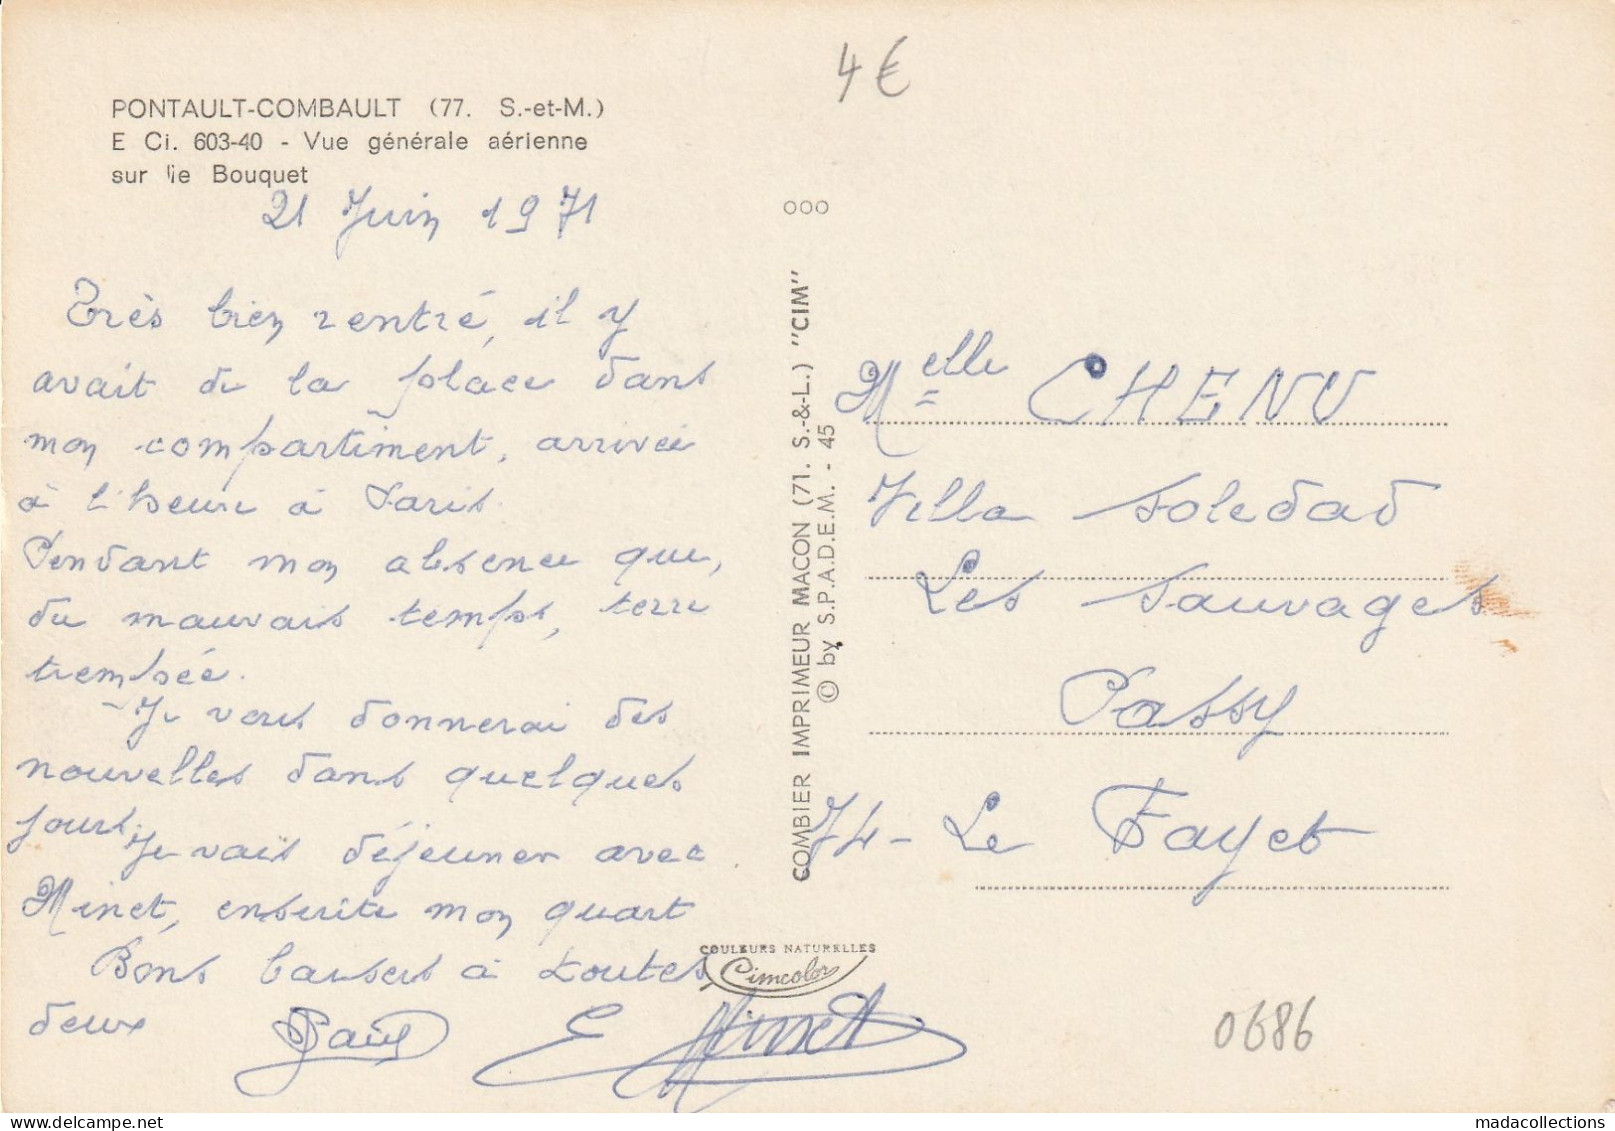 4€
PONTAULT-COMBAULT (77. S.-et-M.)
E Ci. 603-40 - Vue générale aérienne
sur le Bouquet
21 Juin 1971
Très bien rentré, il y
avait de la place dans
mon compartiment, arrivée
à l'heure à Paris.
Pendant mon absence que,
du mauvais temps, terre
trempée.
- Je vous donnerai des
nouvelles dans quelques
jours. Je vais déjeuner avec
Minet, ensuite mon quart
Bons baisers à toutes
deux Paul E Minet
000
COMBIER IMPRIMEUR MACON (71. S.-&-L.) "CIM"
© by S.P.A.D.E.M. - 45
COULEURS NATURELLES
Cimcolor
Melle CHENU
Villa Soledad
Les Sauvages
Passy
74 - Le Fayet
0686
madacollections